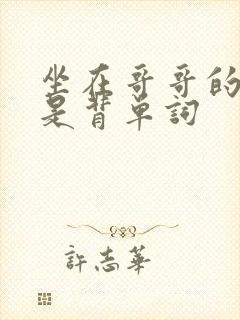 坐在哥哥的
是背单詞
許志華